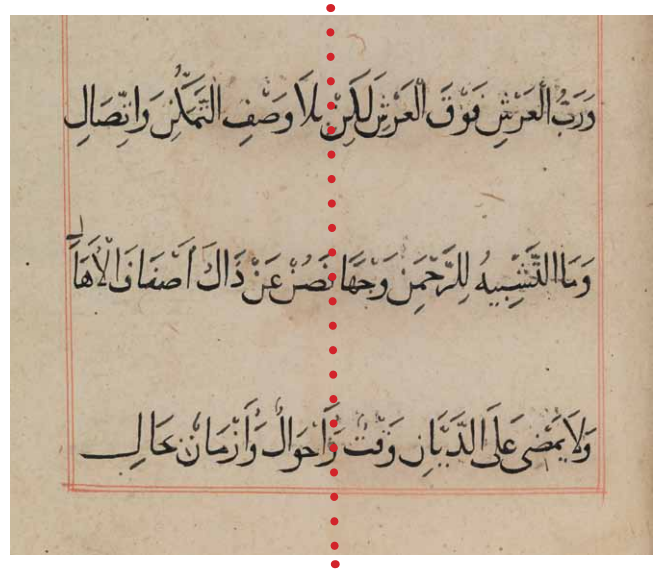 وَرَبُّ الْعَرْشِ فَوْقَ الْعَرْشِ لَكِنْ بِلَا وَصْفِ التَّمَكُّنِ وَاتِّصَالِ
وَمَا التَّشْبِيهُ لِلرَّحْمَنِ وَجْهًا فَصُنْ عَنْ ذَاكَ أَصْنَافَ الْأَهَا
وَلَا يَمْضِي عَلَى الدَّيَّانِ وَقْتٌ وَأَحْوَالٌ وَأَزْمَانٌ بِحَالِ